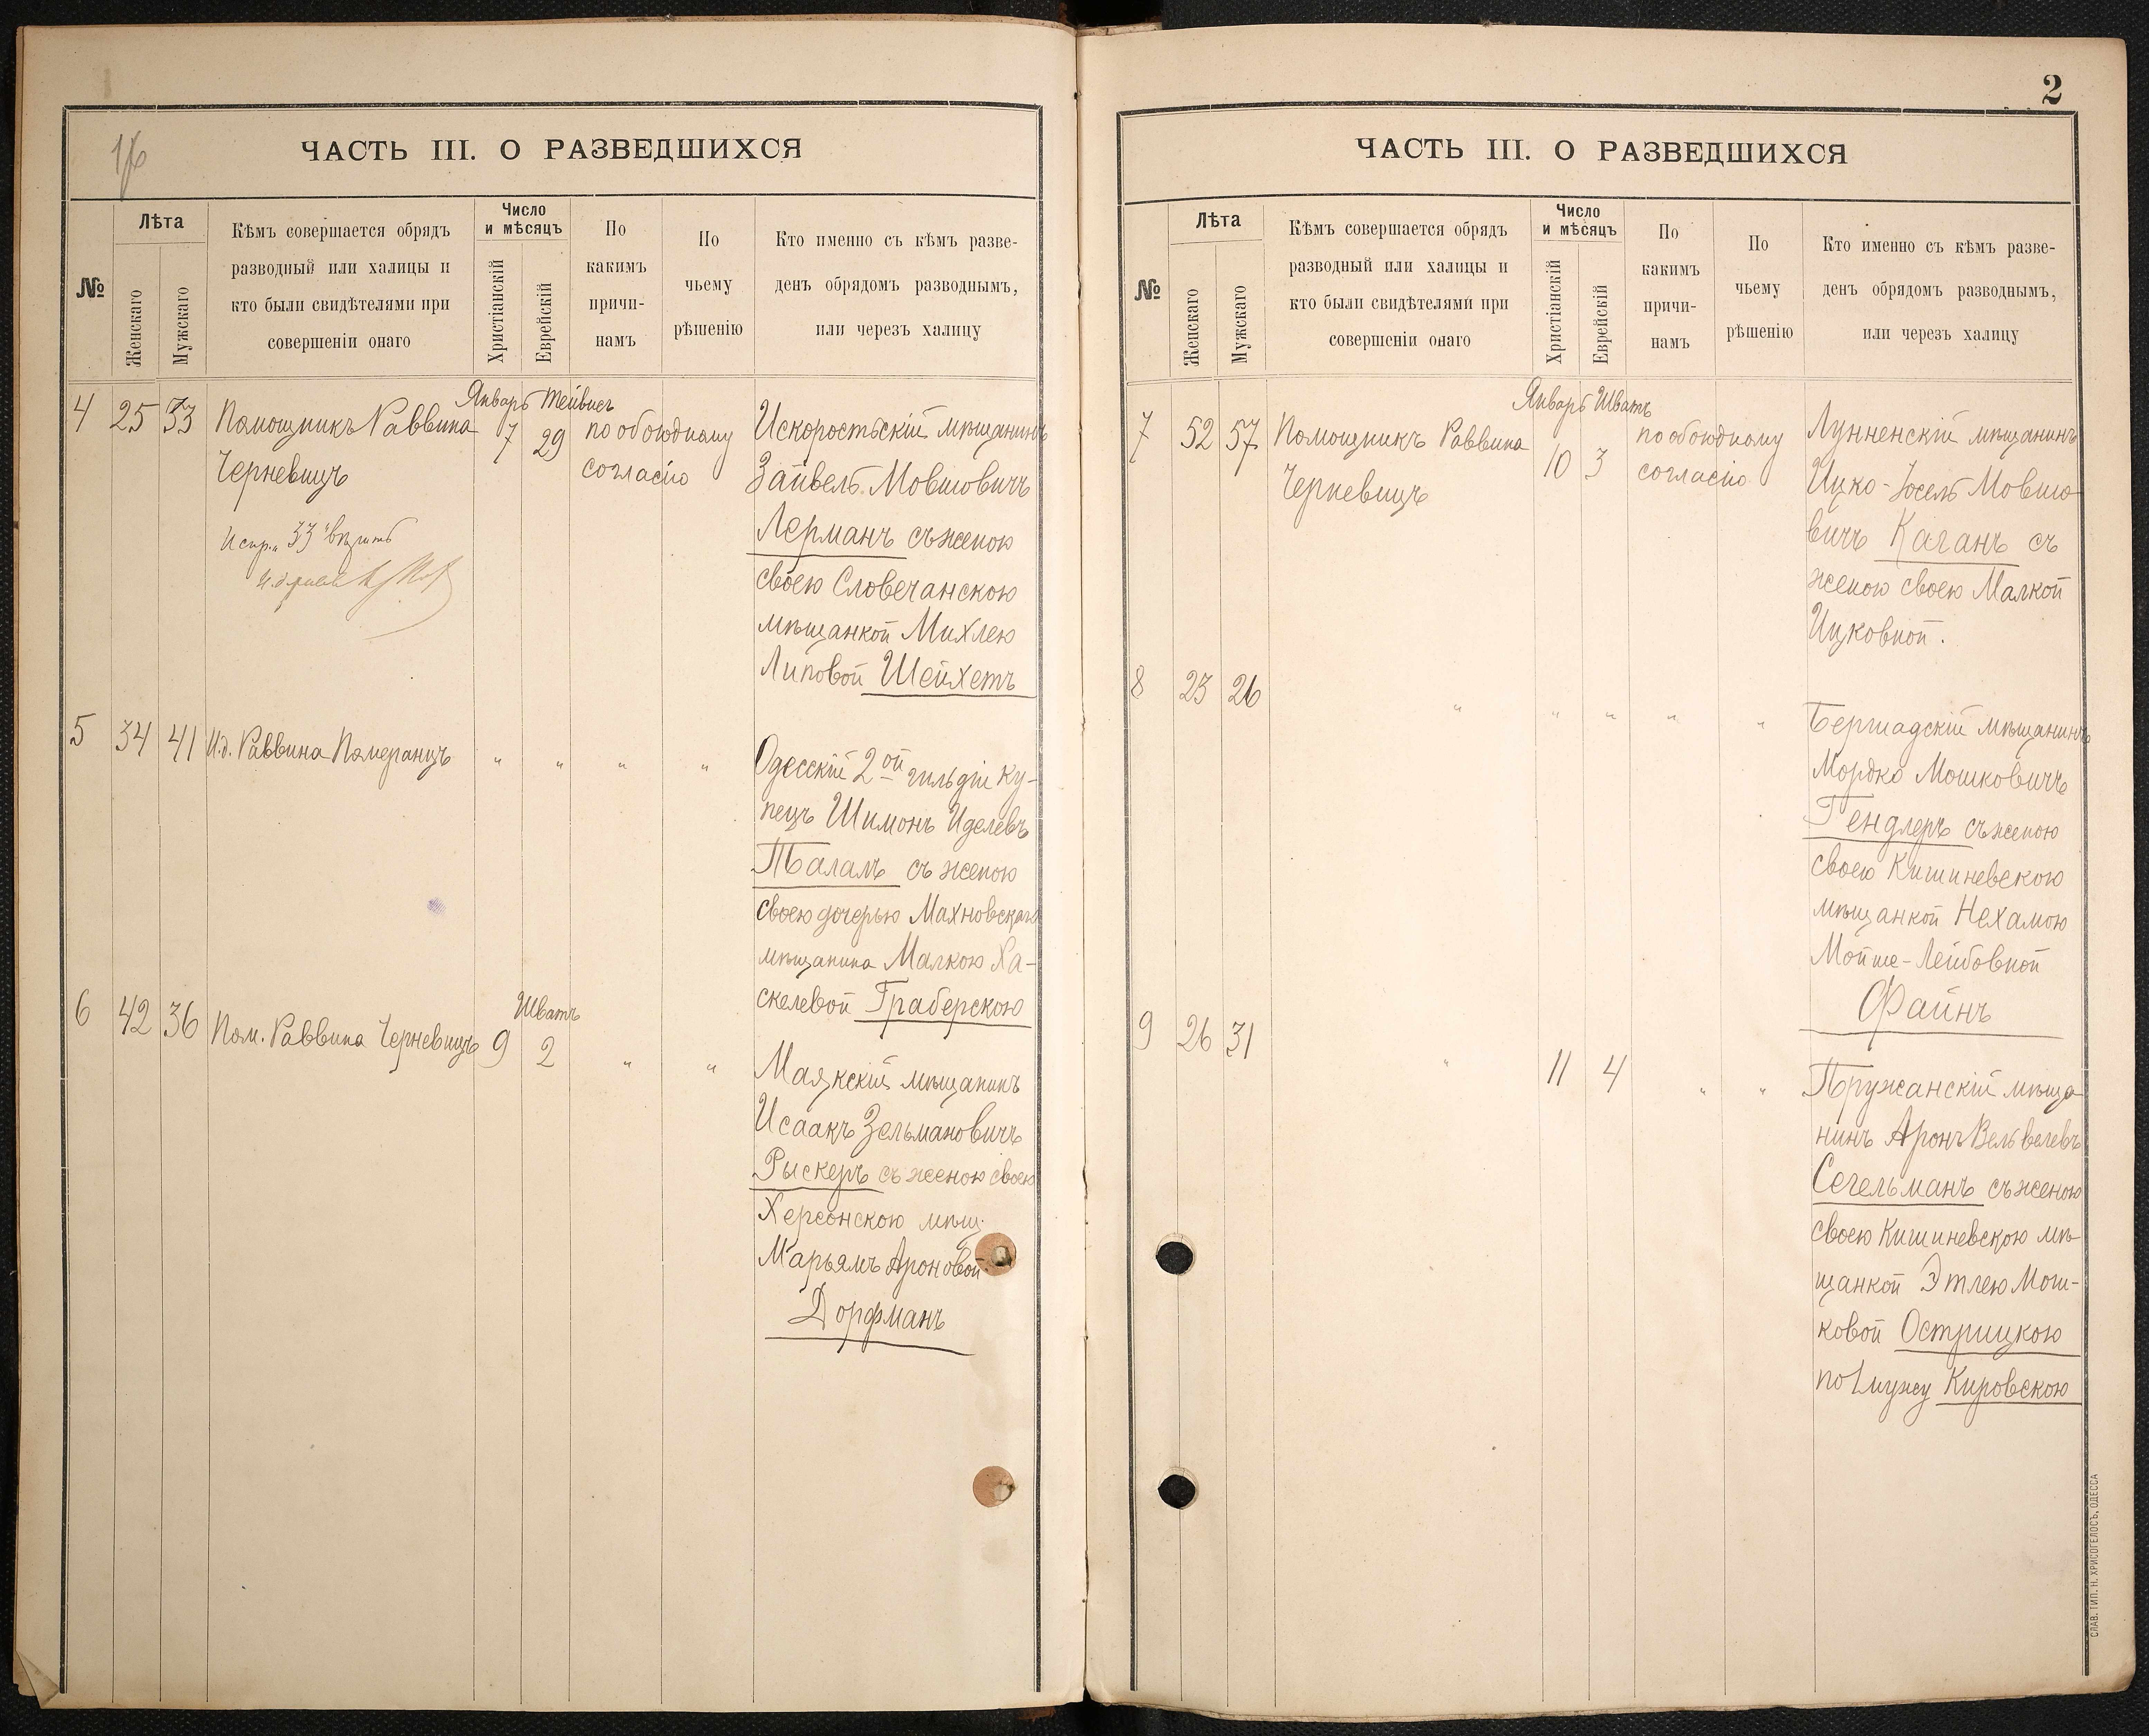 ЧАСТЬ III. О РАЗВЕДШИХСЯ
№
Лѣта
Женскаго
Мужскаго
Кѣмъ совершается обрядъ
разводный или халицы и
кто были свидѣтелями при
совершеніи онаго
Число
и мѣсяцъ
Христіанскій
Еврейскій
По
какимъ
причи-
намъ
По
чьему
рѣшенію
Кто именно съ кѣмъ разве-
денъ обрядомъ разводнымъ,
или черезъ халицу
4 25 33
Помощникъ Раввина
Черневицъ
Испр. „33“ вѣрить
Январь Тейвисъ
7 29
по обоюдному
согласію
Искоростьскій мѣщанинъ
Зайвель Мовшовичъ
Лерманъ съ женою
своею Словечанскою
мѣщанкой Михлею
Липовой Шейхетъ
5 34 41 И.д. Раввина Померанцъ " " " "
Одесскій 2ой гильдіи ку-
пецъ Шимонъ Иделевъ
Талалъ съ женою
своею дочерью Махновскаго
мѣщанина Малкою Ха-
скелевой Граберскою
6 42 36 Пом. Раввина Черневицъ
Шватъ
9 2 " "
Маякскій мѣщанинъ
Исаакъ Зельмановичъ
Рыскеръ съ женою своею
Херсонскою мѣщ.
Марьямъ Ароновой
Дорфманъ
2
ЧАСТЬ III. О РАЗВЕДШИХСЯ
№
Лѣта
Женскаго
Мужскаго
Кѣмъ совершается обрядъ
разводный или халицы и
кто были свидѣтелями при
совершеніи онаго
Число
и мѣсяцъ
Христіанскій
Еврейскій
По
какимъ
причи-
намъ
По
чьему
рѣшенію
Кто именно съ кѣмъ разве-
денъ обрядомъ разводнымъ,
или черезъ халицу
7 52 57
Помощникъ Раввина
Черневицъ
Январь Шватъ
10 3
по обоюдному
согласію
Лунненскій мѣщанинъ
Ицко-Іосель Мовшо-
вичъ Каганъ съ
женою своею Малкой
Ицковной.
8 23 26 " " " " "
Бершадскій мѣщанинъ
Мордко Мошковичъ
Гендлеръ съ женою
своею Кишиневскою
мѣщанкой Нехамою
Мойше-Лейбовной
Файнъ
9 26 31 " 11 4 " "
Пружанскій мѣща-
нинъ Аронъ Вельвелевъ
Сегельманъ съ женою
своею Кишиневскою мѣ-
щанкой Этлею Мош-
ковой Острицкою
по 1 мужу Кировскою
СЛАВ. ТИП. Н. ХРИСОГЕЛОСЪ, ОДЕССА